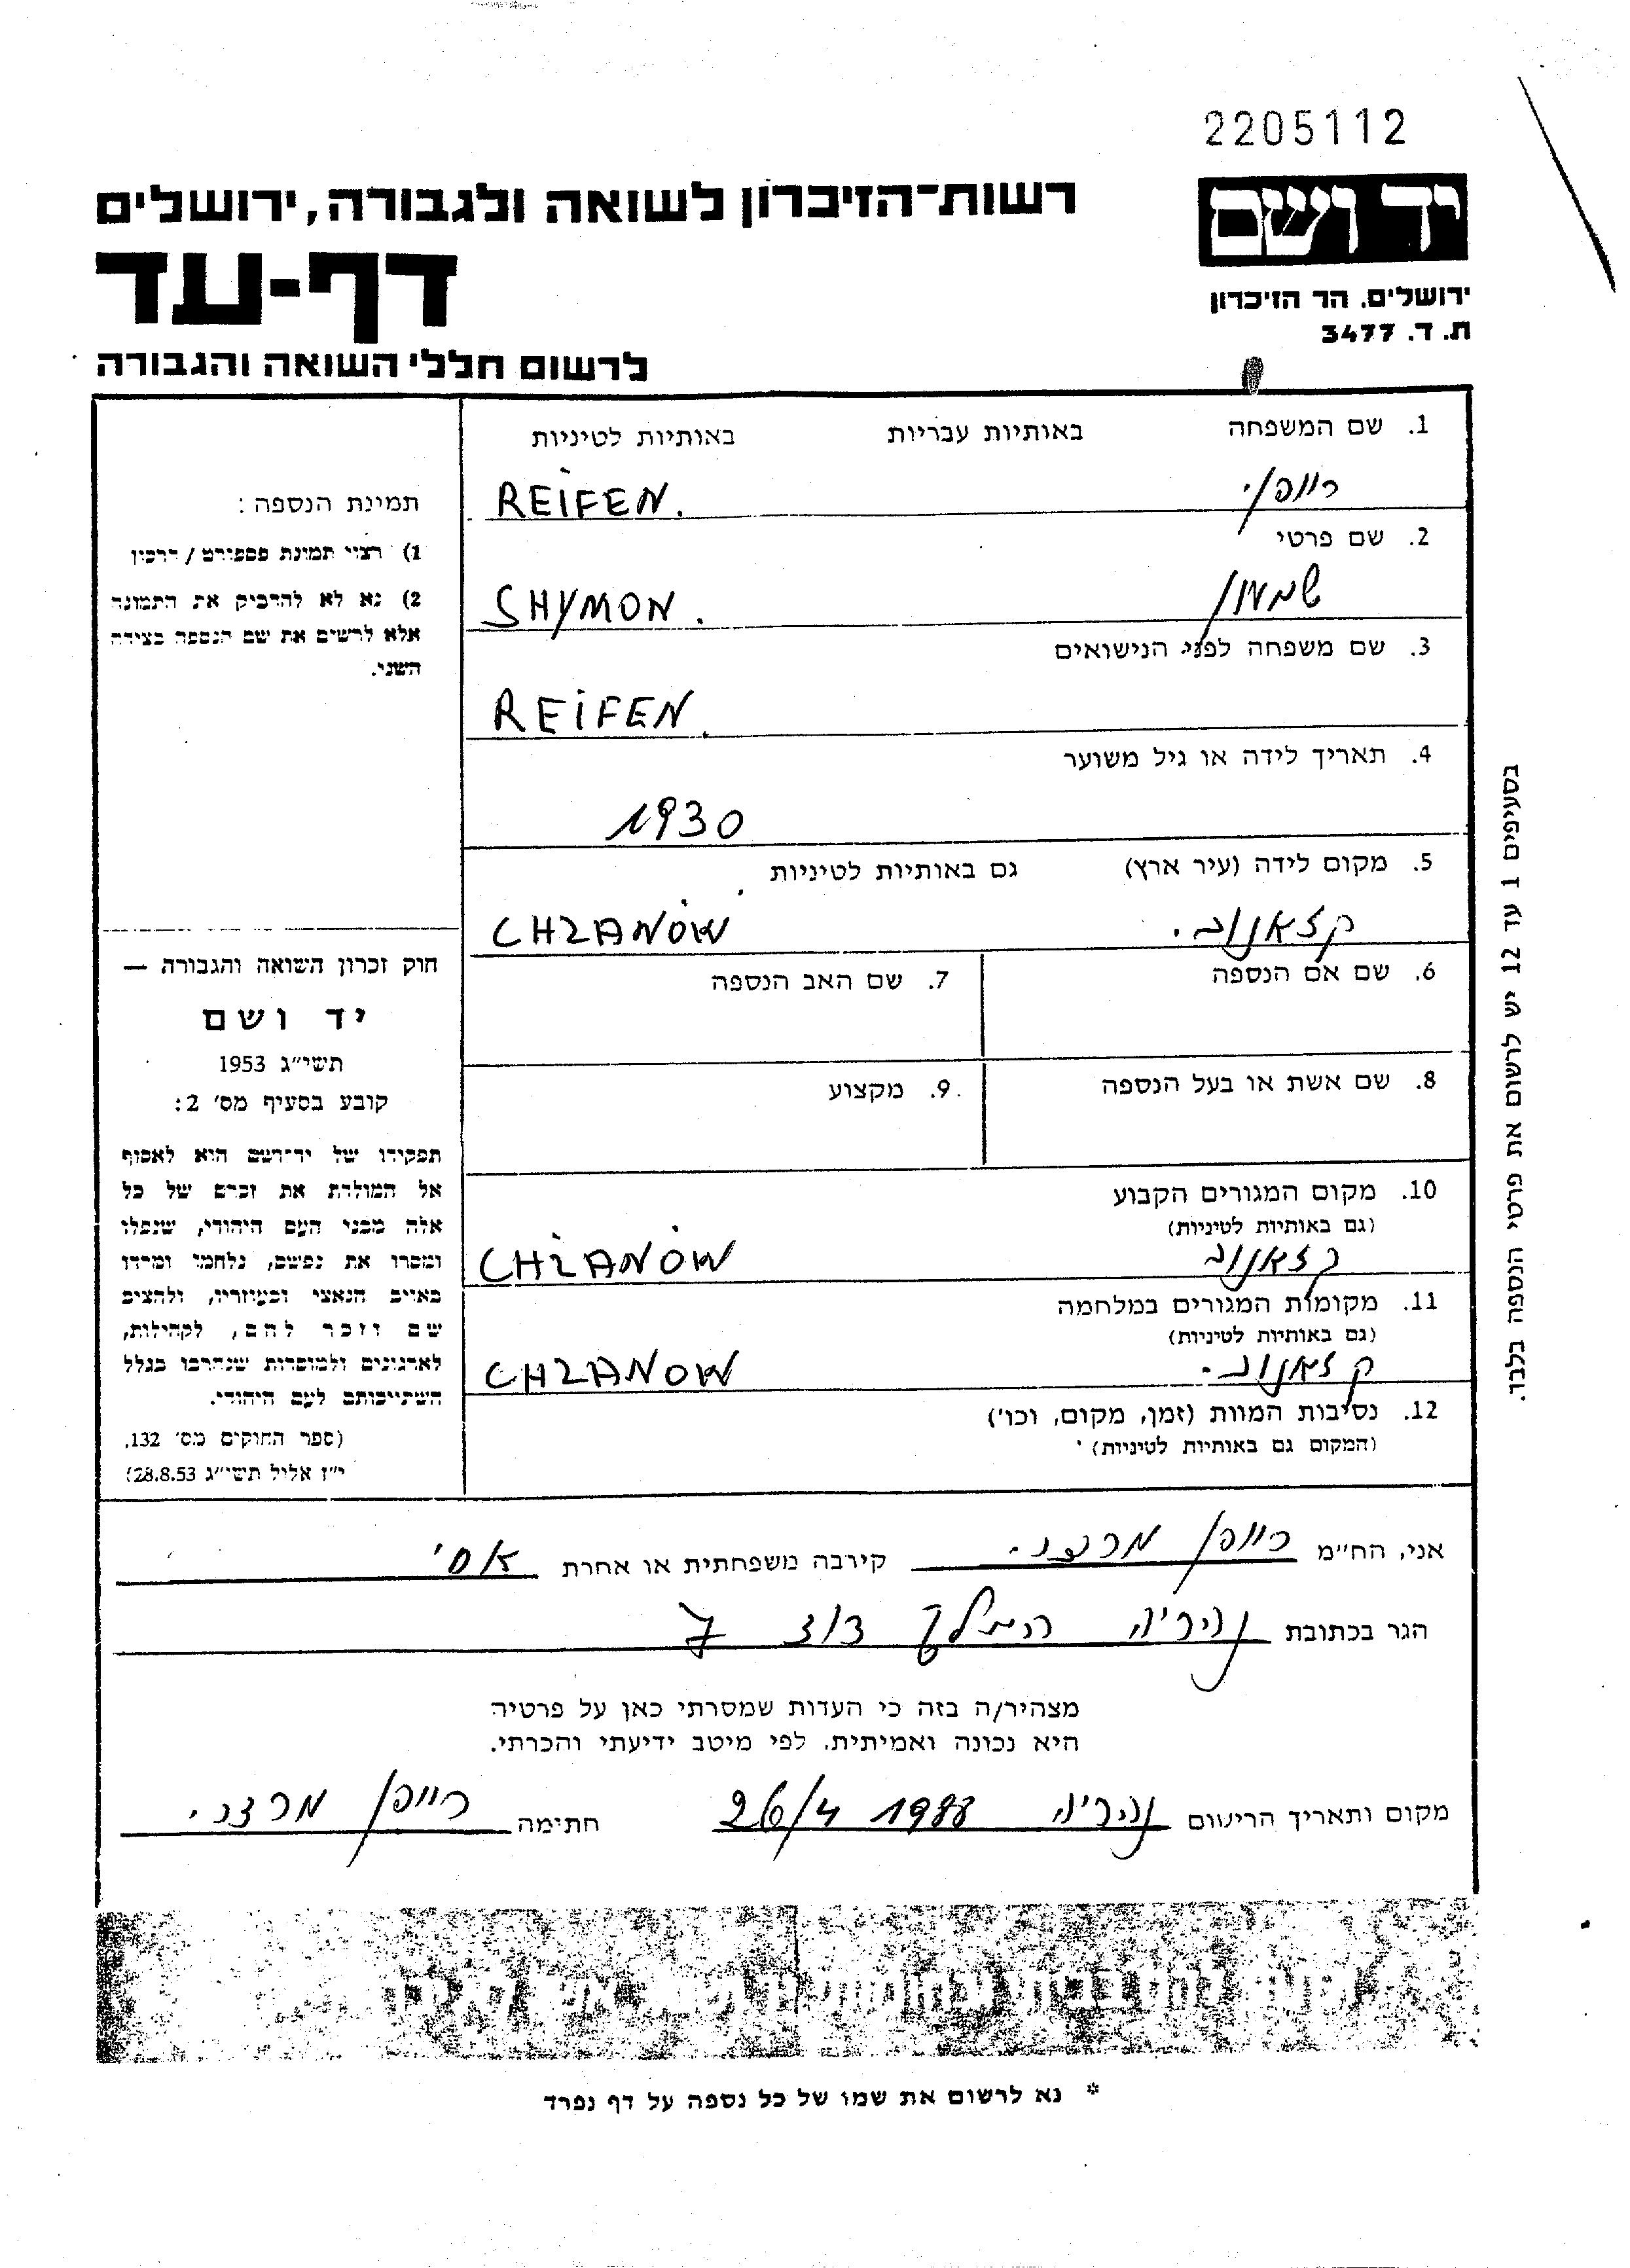 2205112
רשות-הזיכרון לשואה ולגבורה, ירושלים
יד ושם
דף-עד
ירושלים. הר הזיכרון
ת. ד. 3477
לרשום חללי השואה והגבורה
1. שם המשפחה באותיות עבריות באותיות לטיניות
רייפן. REIFEN.
2. שם פרטי
שמעון SHYMON.
3. שם משפחה לפני הנישואים
REIFEN.
4. תאריך לידה או גיל משוער
1930
5. מקום לידה (עיר ארץ) גם באותיות לטיניות
קזאנוב. CHZANÓW
6. שם אם הנספה 7. שם האב הנספה
8. שם אשת או בעל הנספה 9. מקצוע
10. מקום המגורים הקבוע
(גם באותיות לטיניות)
קזאנוב CHZANÓW
11. מקומות המגורים במלחמה
(גם באותיות לטיניות)
קזאנוב. CHZANOW
12. נסיבות המוות (זמן, מקום, וכו')
(המקום גם באותיות לטיניות)
תמינת הנספה:
1) רצוי תמונת פספורט / דרכון
2) נא לא להדביק את התמונה
אלא לרשים את שם הנספה בצידה
השני.
חוק זכרון השואה והגבורה —
יד ושם
תשי״ג 1953
קובע בסעיף מס' 2:
תפקידו של יד-ושם הוא לאסוף
אל המולדת את זכרם של כל
אלה מבני העם היהודי, שנפלו
ומסרו את נפשם, נלחמו ומרדו
באויב הנאצי ובעוזריו, ולהציב
שם וזכר להם, לקהילות,
לארגונים ולמוסדות שנחרבו בגלל
השתייכותם לעם היהודי.
(ספר החוקים מס' 132,
י״ז אלול תשי״ג 28.8.53)
בסעיפים 1 עד 12 יש לרשום את פרטי הנספה בלבד.
אני, הח״מ רייפן קירבה משפחתית או אחרת אחי
הגר בכתובת נהריה המלך דוד 7
מצהיר/ה בזה כי העדות שמסרתי כאן על פרטיה
היא נכונה ואמיתית, לפי מיטב ידיעתי והכרתי.
מקום ותאריך הרישום נהריה 26/4 1988 חתימה רייפן
* נא לרשום את שמו של כל נספה על דף נפרד